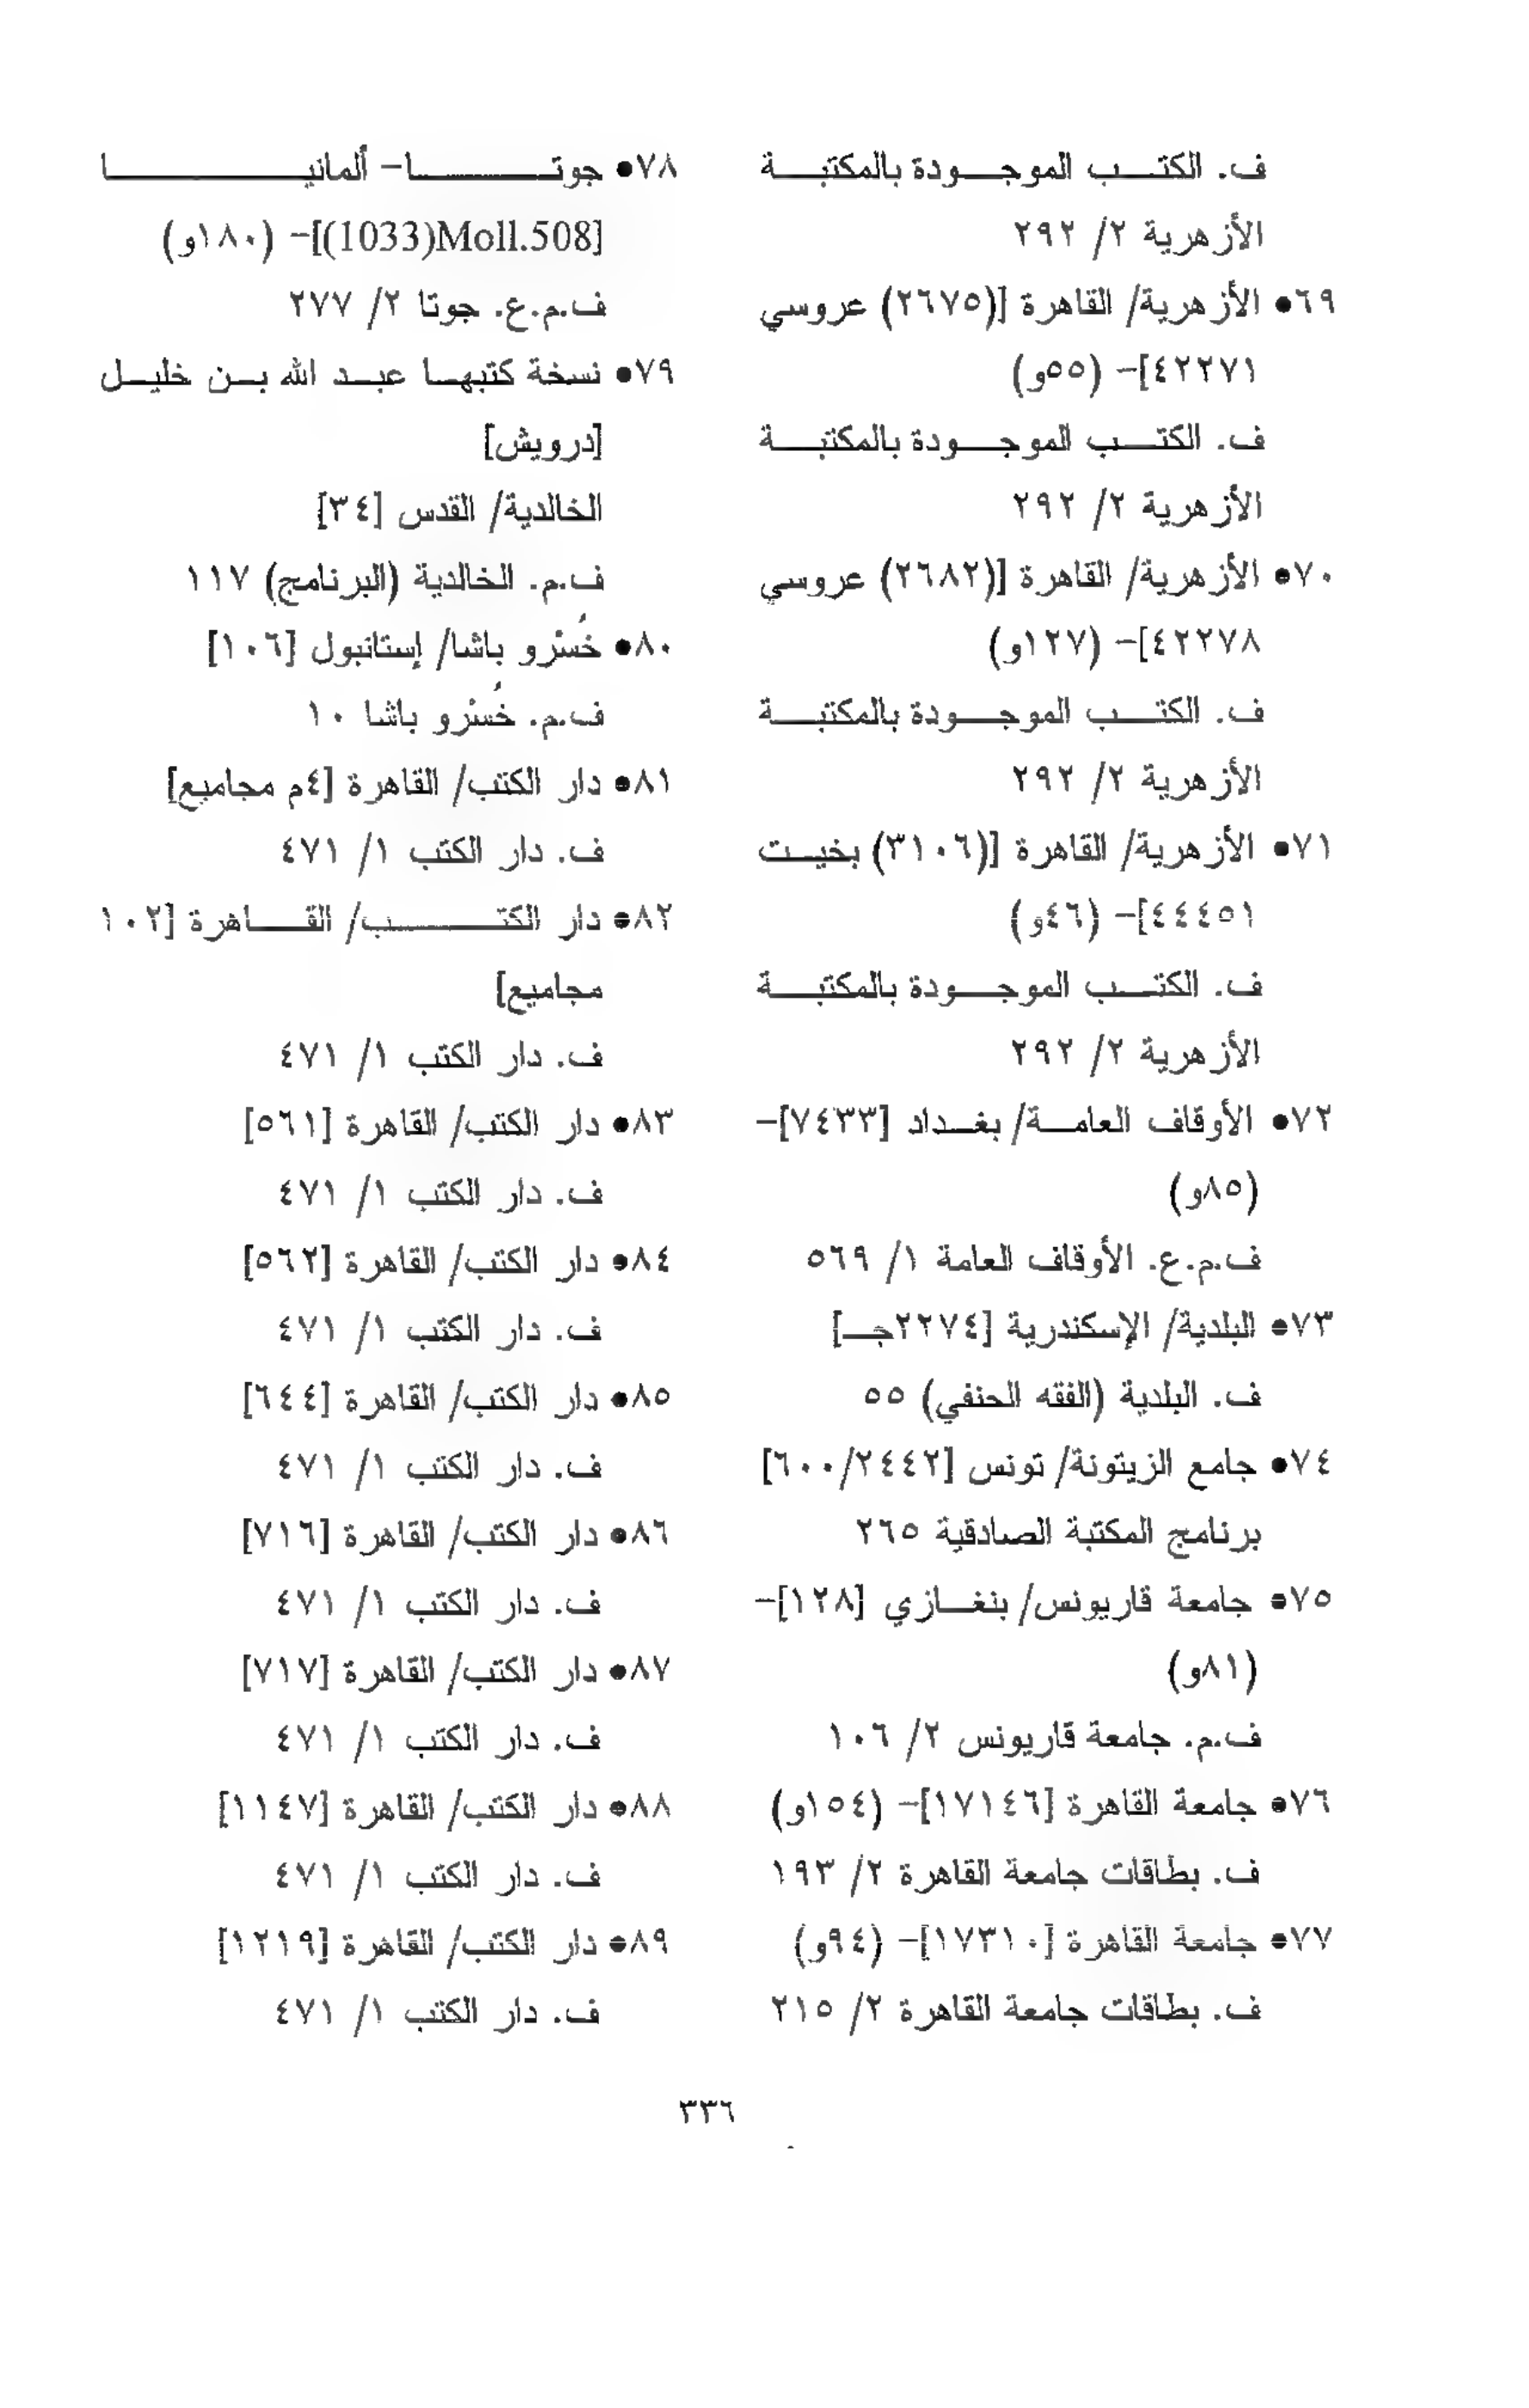 ف. الكتب الموجودة بالمكتبة
الأزهرية ٢/ ٢٩٢
٦٩• الأزهرية/ القاهرة [(٢٦٧٥) عروسي
٤٢٢٧١]- (٥٥و)
ف. الكتب الموجودة بالمكتبة
الأزهرية ٢/ ٢٩٢
٧٠• الأزهرية/ القاهرة [(٢٦٨٢) عروسي
٤٢٢٧٨]- (١٢٧و)
ف. الكتب الموجودة بالمكتبة
الأزهرية ٢/ ٢٩٢
٧١• الأزهرية/ القاهرة [(٣١٠٦) بخيت
٤٤٤٥١]- (٤٦و)
ف. الكتب الموجودة بالمكتبة
الأزهرية ٢/ ٢٩٢
٧٢• الأوقاف العامة/ بغداد [٧٤٣٣]-
(٨٥و)
ف.م.ع. الأوقاف العامة ١/ ٥٦٩
٧٣• البلدية/ الإسكندرية [٢٢٧٤جـ]
ف. البلدية (الفقه الحنفي) ٥٥
٧٤• جامع الزيتونة/ تونس [٦٠٠/٢٤٤٢]
برنامج المكتبة الصادقية ٢٦٥
٧٥• جامعة قاريونس/ بنغازي [١٢٨]-
(٨١و)
ف.م. جامعة قاريونس ٢/ ١٠٦
٧٦• جامعة القاهرة [١٧١٤٦]- (١٥٤و)
ف. بطاقات جامعة القاهرة ٢/ ١٩٣
٧٧• جامعة القاهرة [١٧٣١٠]- (٩٤و)
ف. بطاقات جامعة القاهرة ٢/ ٢١٥
٧٨• جوتا- ألمانيا
[(1033)Moll.508]- (١٨٠و)
ف.م.ع. جوتا ٢/ ٢٧٧
٧٩• نسخة كتبها عبد الله بن خليل
[درويش]
الخالدية/ القدس [٣٤]
ف.م. الخالدية (البرنامج) ١١٧
٨٠• خُسْرو باشا/ إستانبول [١٠٦]
ف.م. خُسْرو باشا ١٠
٨١• دار الكتب/ القاهرة [٤م مجاميع]
ف. دار الكتب ١/ ٤٧١
٨٢• دار الكتب/ القاهرة [١٠٢
مجاميع]
ف. دار الكتب ١/ ٤٧١
٨٣• دار الكتب/ القاهرة [٥٦١]
ف. دار الكتب ١/ ٤٧١
٨٤• دار الكتب/ القاهرة [٥٦٢]
ف. دار الكتب ١/ ٤٧١
٨٥• دار الكتب/ القاهرة [٦٤٤]
ف. دار الكتب ١/ ٤٧١
٨٦• دار الكتب/ القاهرة [٧١٦]
ف. دار الكتب ١/ ٤٧١
٨٧• دار الكتب/ القاهرة [٧١٧]
ف. دار الكتب ١/ ٤٧١
٨٨• دار الكتب/ القاهرة [١١٤٧]
ف. دار الكتب ١/ ٤٧١
٨٩• دار الكتب/ القاهرة [١٢١٩]
ف. دار الكتب ١/ ٤٧١
٣٣٦